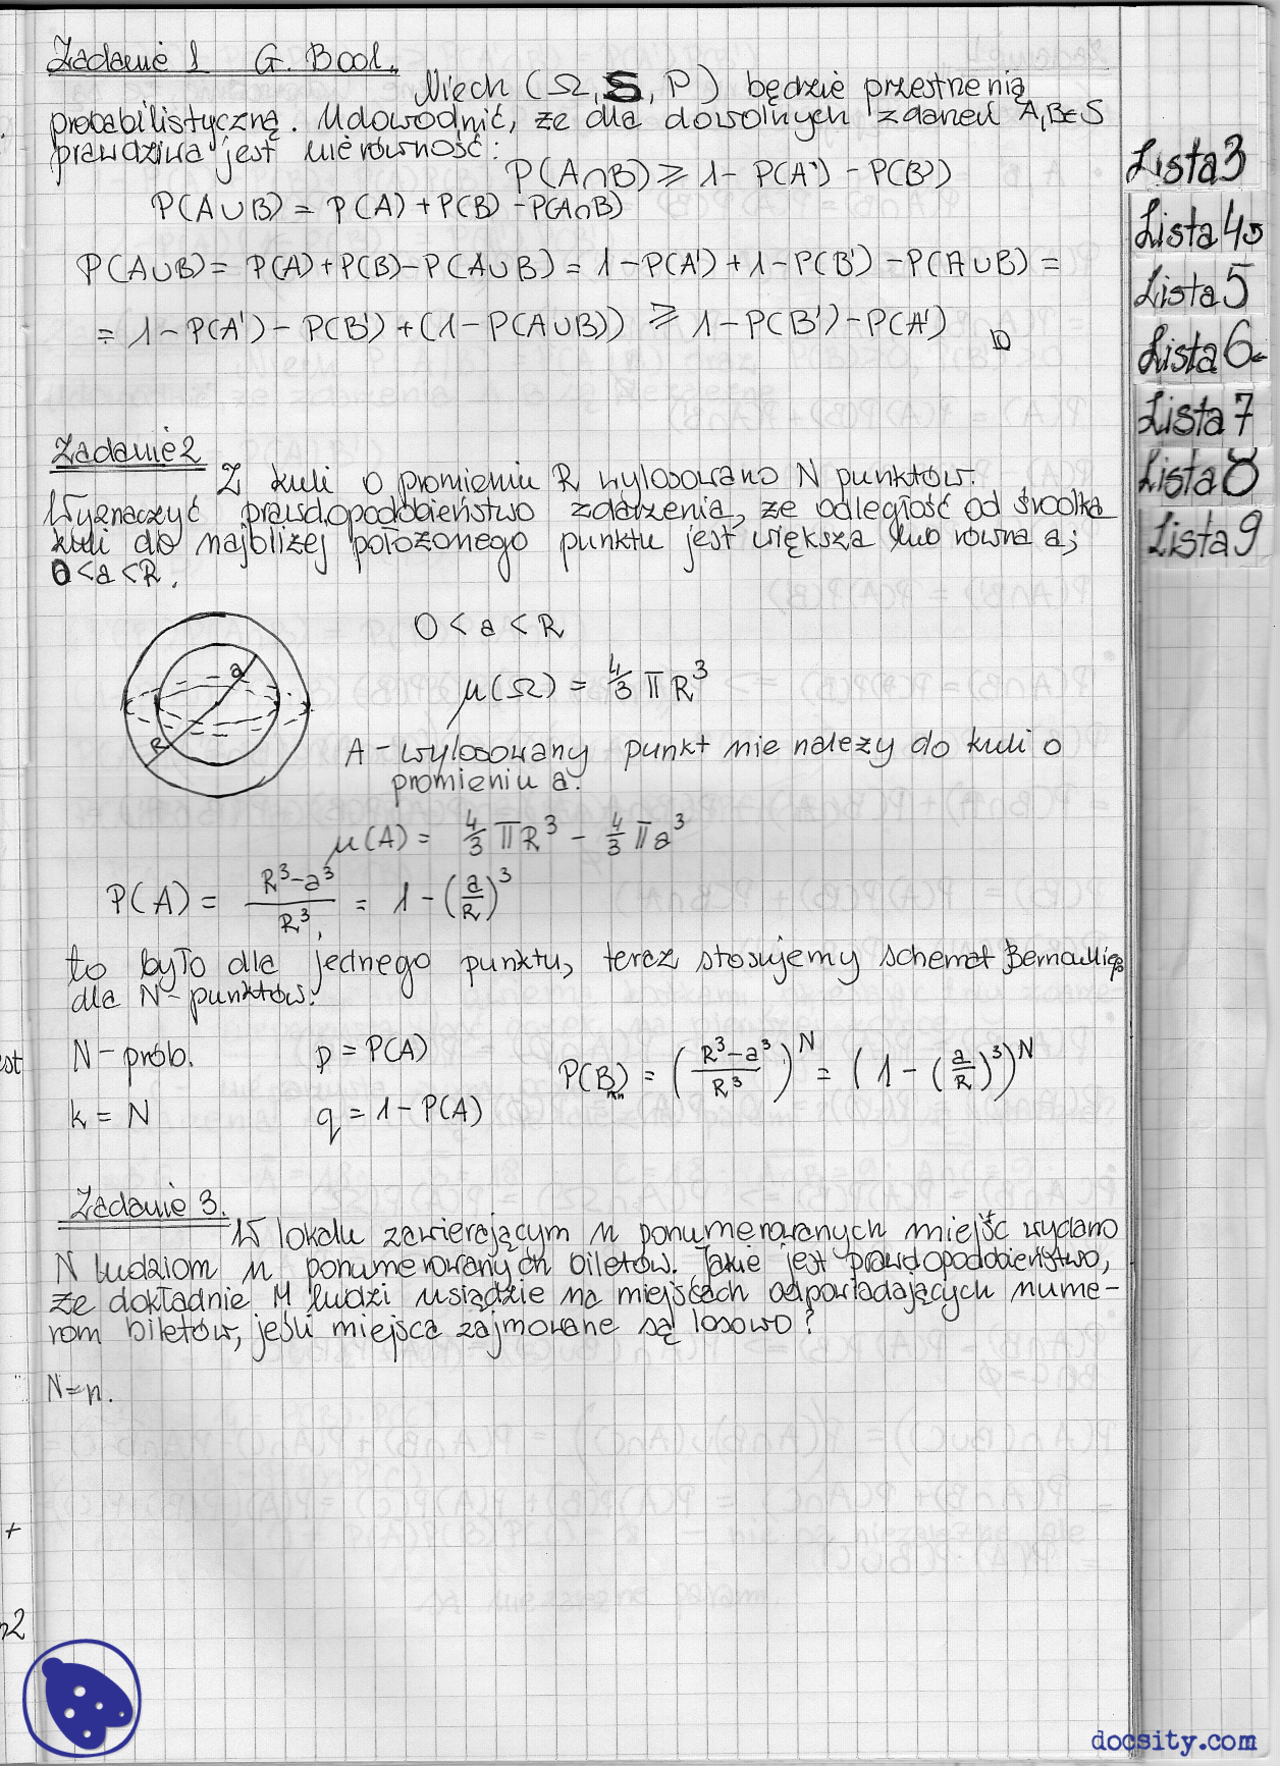 Zadanie 1 G. Bool.
Niech (Ω, S, P) będzie przestrzenią
probabilistyczną. Udowodnić, że dla dowolnych zdarzeń A,B∈S
prawdziwa jest nierówność:
P(A∩B) ≥ 1 - P(A') - P(B')
P(A∪B) = P(A) + P(B) - P(A∩B)
P(A∪B) = P(A) + P(B) - P(A∪B) = 1 - P(A') + 1 - P(B') - P(A∪B) =
= 1 - P(A') - P(B') + (1 - P(A∪B)) ≥ 1 - P(B') - P(A')
Zadanie 2
Z kuli o promieniu R wylosowano N punktów.
Wyznaczyć prawdopodobieństwo zdarzenia, że odległość od środka
kuli do najbliżej położonego punktu jest większa lub równa a;
0 < a < R.
0 < a < R
a
R
μ(Ω) = 4/3 π R³
A - wylosowany punkt nie należy do kuli o
promieniu a.
μ(A) = 4/3 π R³ - 4/3 π a³
P(A) = (R³-a³)/R³ = 1 - (a/R)³
to było dla jednego punktu, teraz stosujemy schemat Bernoulliego
dla N-punktów.
N - prób. p = P(A) P(B) = ((R³-a³)/R³)^N = (1 - (a/R)³)^N
k = N q = 1 - P(A)
Zadanie 3.
W lokalu zawierającym n ponumerowanych miejsc wydano
N ludziom n ponumerowanych biletów. Jakie jest prawdopodobieństwo,
że dokładnie M ludzi usiądzie na miejscach odpowiadających nume-
rom biletów, jeśli miejsca zajmowane są losowo?
N=n.
Lista 3
Lista 4
Lista 5
Lista 6
Lista 7
Lista 8
Lista 9
docsity.com